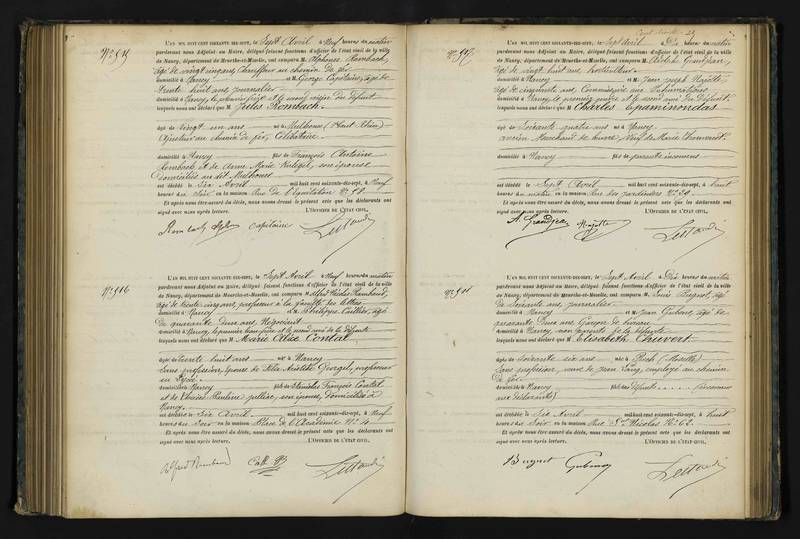 N° 515
L'AN MIL HUIT CENT SOIXANTE-DIX-SEPT, le Sept Avril à Neuf heures du matin
pardevant nous Adjoint au Maire, délégué faisant fonctions d'officier de l'état civil de la ville
de Nancy, département de Meurthe-et-Moselle, ont comparu M. Alphonse Rombach,
âgé de vingt cinq ans, Chauffeur au chemin de fer
domicilié à Nancy et M. George Capitaine, âgé de
trente huit ans, journalier
domicilié à Nancy, le premier frère et le second voisin du défunt
lesquels nous ont déclaré que M. Jules Rombach.
âgé de Vingt un ans né à Mulhouse (Haut Rhin)
Ajusteur au chemin de fer, Célibataire.
domicilié à Nancy fils de François Antoine
Rombach et de Anne Marie son épouse
domiciliés au dit Mulhouse
est décédé le Six Avril mil huit cent soixante-dix-sept, à Neuf
heures du Soir en la maison Rue de l'Equitation N° 58
Et après nous être assuré du décès, nous avons dressé le présent acte que les déclarants ont
signé avec nous après lecture. L'OFFICIER DE L'ÉTAT CIVIL,
capitaine
N° 516
L'AN MIL HUIT CENT SOIXANTE-DIX-SEPT, le Sept Avril à Neuf heures du matin
pardevant nous Adjoint au Maire, délégué faisant fonctions d'officier de l'état civil de la ville
de Nancy, département de Meurthe-et-Moselle, ont comparu M. Alfred Nicolas Rambaud,
âgé de trente cinq ans, professeur à la faculté des lettres
domicilié à Nancy et M. Philippe âgé
de quarante deux ans, Négociant
domicilié à Nancy, le premier beau frère et le second ami de la défunte
lesquels nous ont déclaré que M. Marie Alice Contal
âgée de trente huit ans née à Nancy
Sans profession, épouse de Félix Aristide professeur
au Lycée.
domiciliée à Nancy fille de Stanislas François Contal
et de Louise Pauline son épouse, domiciliés à
Nancy.
est décédée le Six Avril mil huit cent soixante-dix-sept, à Neuf
heures du Soir en la maison Place de l'Académie N° 4
Et après nous être assuré du décès, nous avons dressé le présent acte que les déclarants ont
signé avec nous après lecture. L'OFFICIER DE L'ÉTAT CIVIL,
Alfred Rambaud
N° 517
L'AN MIL HUIT CENT SOIXANTE-DIX-SEPT, le Sept Avril à Dix heures du matin
pardevant nous Adjoint au Maire, délégué faisant fonctions d'officier de l'état civil de la ville
de Nancy, département de Meurthe-et-Moselle, ont comparu M. Adolphe Grandjean,
âgé de vingt huit ans, horticulteur
domicilié à Nancy et M. Jean Joseph
âgé de cinquante ans, Commissaire aux Inhumations
domicilié à Nancy, le premier et le second ami du défunt.
lesquels nous ont déclaré que M. Charles Epaminondas
âgé de Soixante quatre ans né à Nancy
ancien Marchand de Veuf de Marie
domicilié à Nancy fils de parents inconnus
est décédé le Sept Avril mil huit cent soixante-dix-sept, à huit
heures du matin en la maison Rue des jardiniers N° 39
Et après nous être assuré du décès, nous avons dressé le présent acte que les déclarants ont
signé avec nous après lecture. L'OFFICIER DE L'ÉTAT CIVIL,
A. Grandjean
L'AN MIL HUIT CENT SOIXANTE-DIX-SEPT, le Sept Avril à Dix heures du matin
pardevant nous Adjoint au Maire, délégué faisant fonctions d'officier de l'état civil de la ville
de Nancy, département de Meurthe-et-Moselle, ont comparu M. Louis Bugnot, âgé
de Soixante ans, journalier
domicilié à Nancy et M. Jean âgé de
quarante deux ans Garçon de bureau
domicilié à Nancy, non parents de la défunte
lesquels nous ont déclaré que M. Elisabeth Chuvert
âgée de soixante six ans née à (Moselle)
Sans profession, veuve de Jean Lang, employé au chemin
de fer.
domiciliée à Nancy fille de défunts (inconnus
aux déclarants)
est décédée le Six Avril mil huit cent soixante-dix-sept, à huit
heures du Soir en la maison Rue St Nicolas N° 62.
Et après nous être assuré du décès, nous avons dressé le présent acte que les déclarants ont
signé avec nous après lecture. L'OFFICIER DE L'ÉTAT CIVIL,